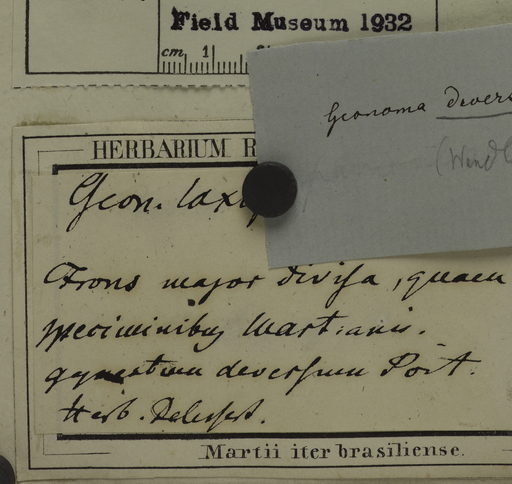 Field Museum 1932
cm 1
Geonoma divers
(Wendl
HERBARIUM R
Geon. lax
Frons major divisa, quam
speciminibus Martianis.
diversum Poit.
Herb. Delessert.
Martii iter brasiliense.